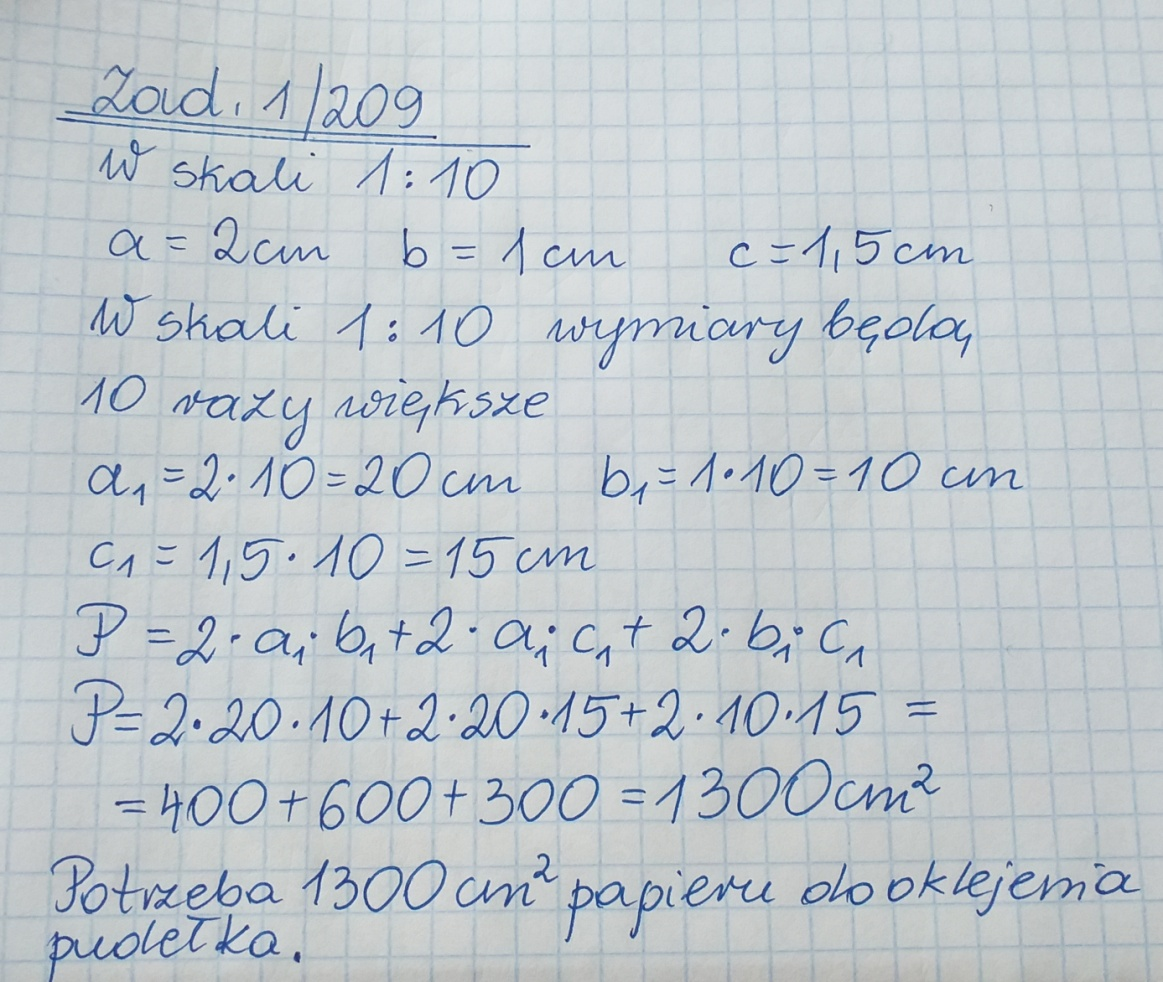 Zad. 1/209
W skali 1:10
a = 2cm b = 1cm c = 1,5cm
W skali 1:10 wymiary będą
10 razy większe
a₁ = 2·10 = 20cm b₁ = 1·10 = 10 cm
c₁ = 1,5·10 = 15cm
P = 2·a₁·b₁ + 2·a₁·c₁ + 2·b₁·c₁
P = 2·20·10 + 2·20·15 + 2·10·15 =
= 400 + 600 + 300 = 1300cm²
Potrzeba 1300cm² papieru do oklejenia
pudełka.